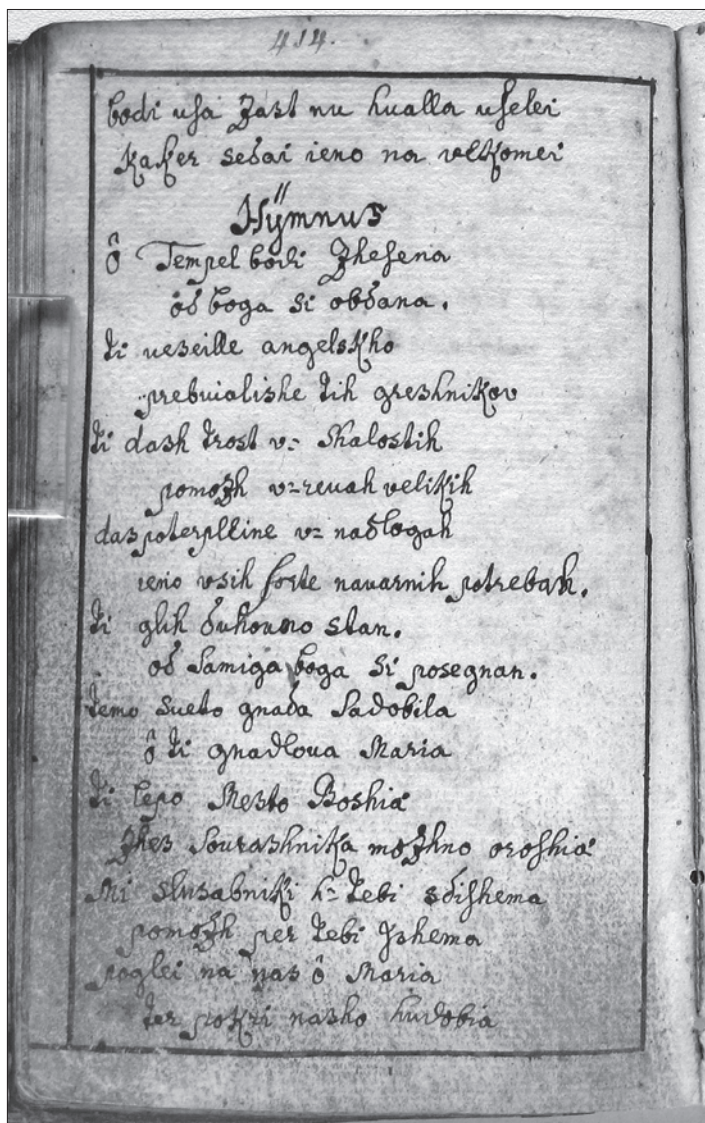 414.
bodi usa Zast nu hualla uselei
Kaker sedai ieno na velkomei
Hÿmnus
ô Tempel bodi Zhesena
od boga si obdana.
ti veseille angelskho
prebuialishe tih greshnikov
ti dash trost v= Shalostih
pomozh v=revah velikih
das poterplline v= nadlogah
ieno vsih forte navarnih potrebah.
ti glih duhouno stan.
od Samiga boga si posegnan.
temo sueto gnada Sadobila
ô ti gnadloua Maria
ti lepo Mesto Boshia
Zhes Sourashnika mozhno oroshia
Mi slusabniki k= tebi sdishema
pomozh per tebi Jshema
poglei na nas ô Maria
ter pokri nasho hudobia